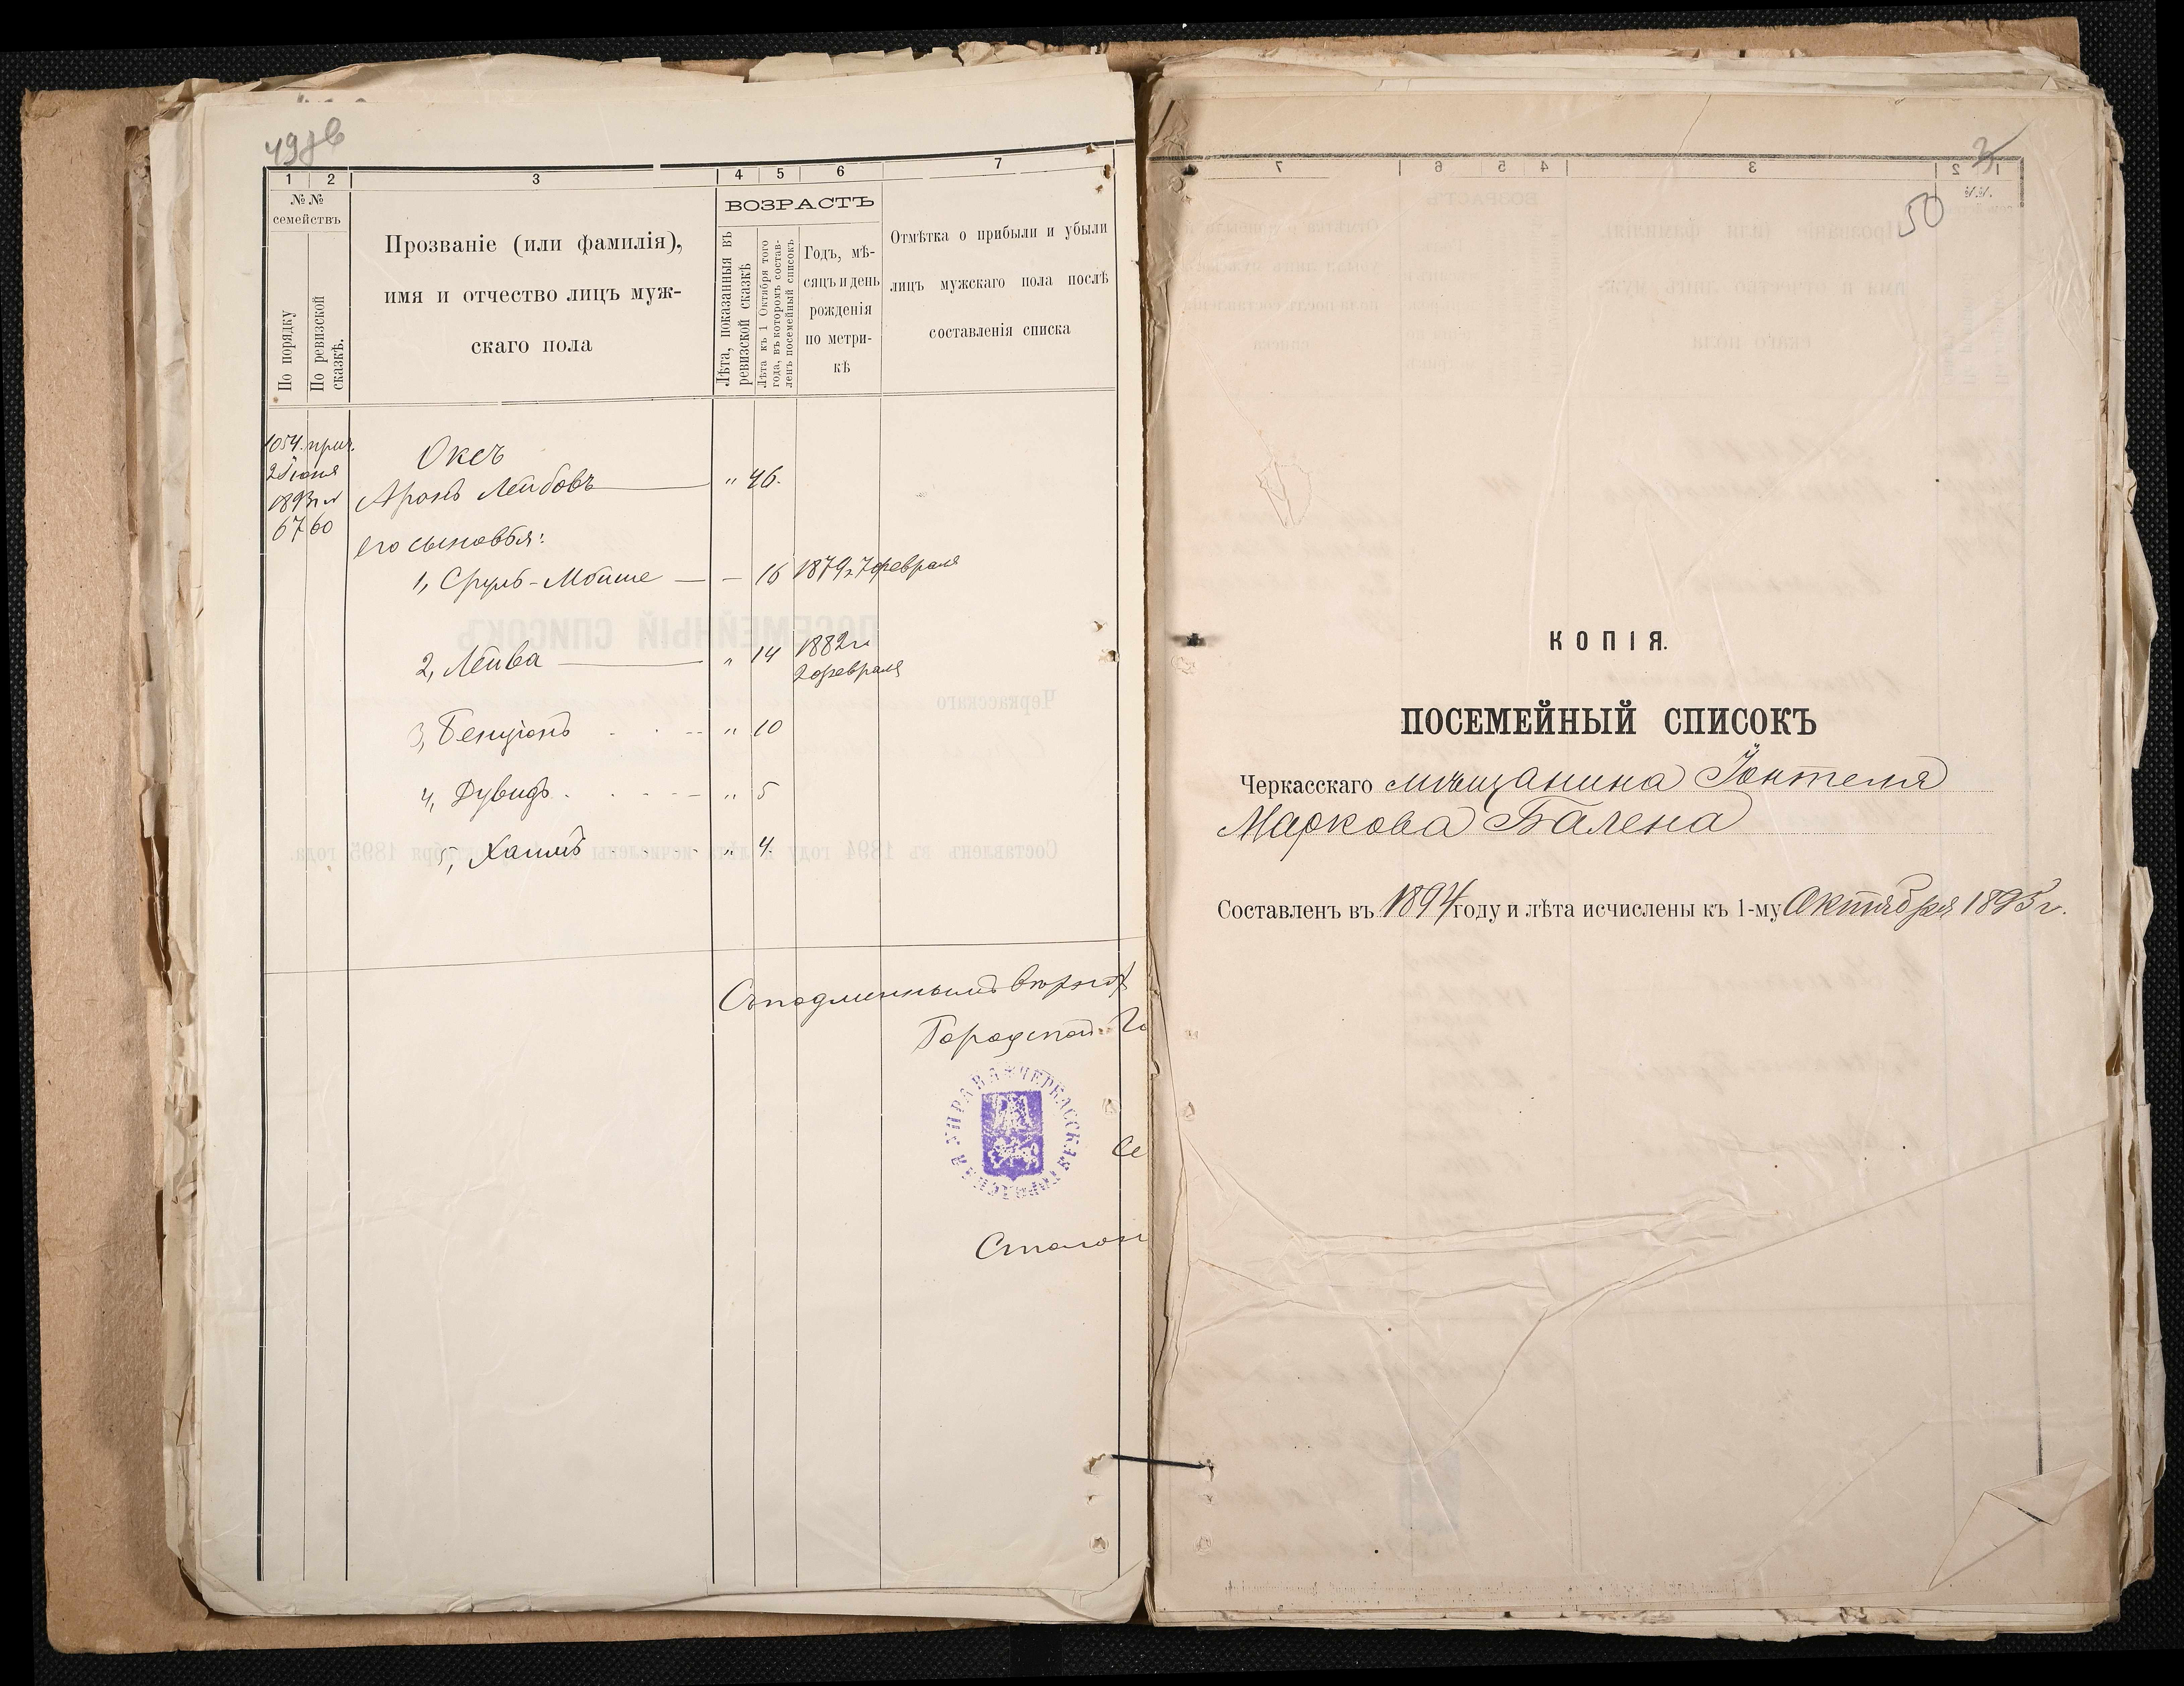 49 об
1 2 3 4 5 6 7
№№ семействъ
По порядку
По ревизской сказкѣ.
Прозваніе (или фамилія),
имя и отчество лицъ муж-
скаго пола
ВОЗРАСТЪ
Лѣта, показанныя въ
ревизской сказкѣ
Лѣта къ 1 Октября того
года, въ которомъ состав-
ленъ посемейный списокъ
Годъ, мѣ-
сяцъ и день
рожденія
по метри-
кѣ
Отмѣтка о прибыли и убыли
лицъ мужскаго пола послѣ
составленія списка
1054. прич.
2 Іюня
1893 г.
6760
Оксъ
Аронъ Лейбовъ " 46.
его сыновья:
1, Сруль-Мойше — 16 1879 г. 7 февраля
2, Лейва " 14 1882 г.
2 февраля
3, Бенціонъ " 10
4, Дувидъ " 5
5, Хаимъ " 4.
Съ подлиннымъ вѣрно
Городской Го
ЧЕРКАССКАЯ УПРАВА
Се
Столон
3
50
КОПІЯ.
ПОСЕМЕЙНЫЙ СПИСОКЪ
Черкасскаго мѣщанина Іонтеля
Маркова Балена
Составленъ въ 1894 году и лѣта исчислены къ 1-му Октября 1895 г.